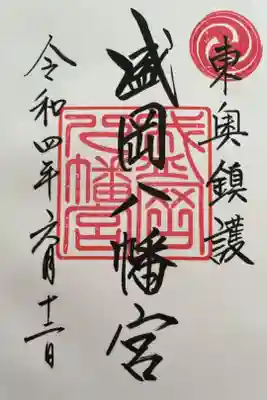 東奥鎮護
盛岡八幡宮
令和四年六月十二日
盛岡八幡宮